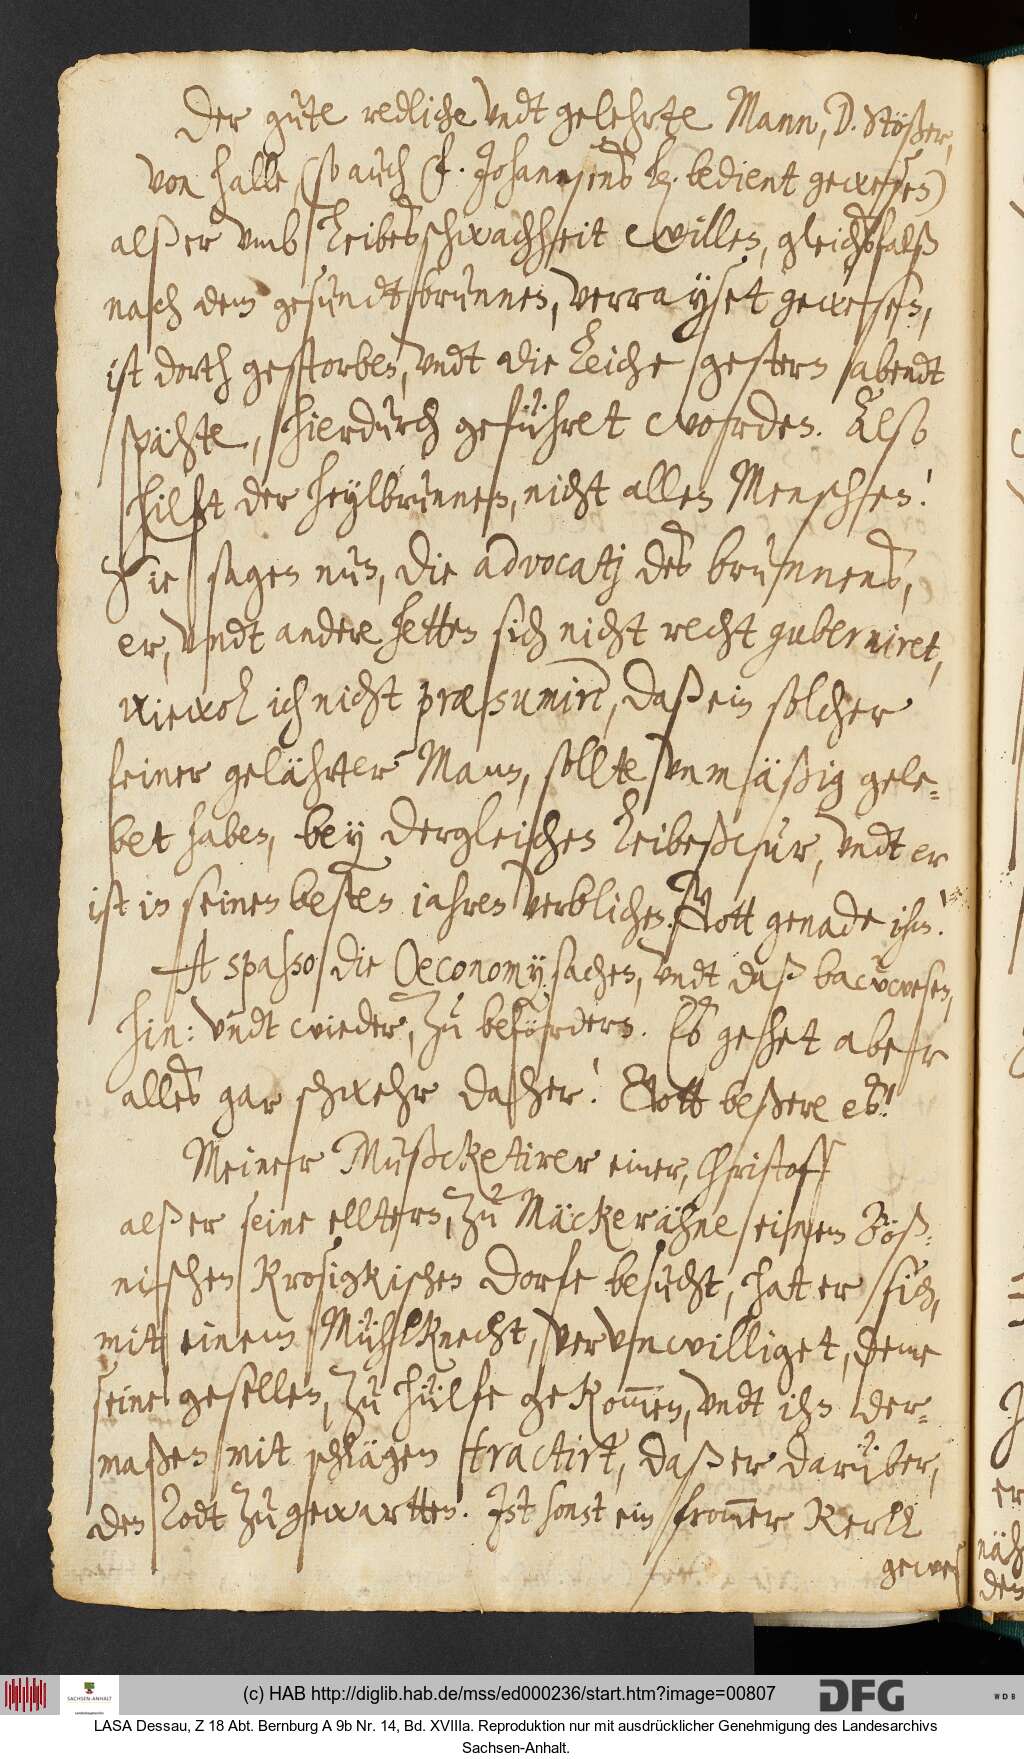 Der güte redliche Vndt gelehrte Mann, D. Stößer,
von Halle (so auch F. Johannsens h. bedient gewesen)
alß er vmb Leibesschwachheit willen, gleichsfalß
nach dem gesundtbrunnen, verrayset gewesen,
ist dorth gestorben, Vndt die Leiche gestern abendt
spähte, hierdurch geführet worden. Also
hilft der heylbrunnen, nicht allen Menschen!
Sie sagen nun, die advocatj des brunnens,
er, Vndt andere hetten sich nicht recht guberniret,
wiewol ich nicht præsumire, daß ein solcher
feiner gelährter Mann, sollte vnmäßig gele-
bet haben, bey dergleichen Leibeßcur, Vndt er
ist in seinen besten jahren verblichen. Gott genade ihm!
A spasso die Oeconomysachen, Vndt daß bawwesen,
hin: Vndt wieder, zu befördern. Es gehet aber
alles gar schwehr daher! Gott beßere es!
Meiner Mußcketirer einer, Christoff
alß er seine elltern, zu Mäckerähne einem Böß-
nischen Krosigkischen dorfe besucht, hat er sich,
mit einem Mühlknecht, vervnwilliget, deme
seine gesellen, zu hülfe gekommen, Vndt ihn der-
maßen mit schlägen tractirt, daß er darüber,
den Todt zu gewartten. Ist sonst ein frommer Kerll
gewes
er
näh
den
(c) HAB http://diglib.hab.de/mss/ed000236/start.htm?image=00807
SACHSEN-ANHALT
DFG
WDB
LASA Dessau, Z 18 Abt. Bernburg A 9b Nr. 14, Bd. XVIIIa. Reproduktion nur mit ausdrücklicher Genehmigung des Landesarchivs
Sachsen-Anhalt.